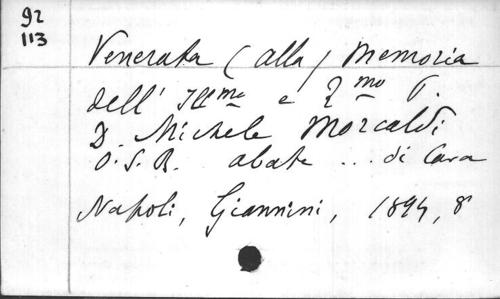 92
113
Venerata (alla) Memoria
dell' Illmo e Rmo P.
D. Michele Morcaldi
O.S.B. abate ... di Cava
Napoli, Giannini, 1894, 8°